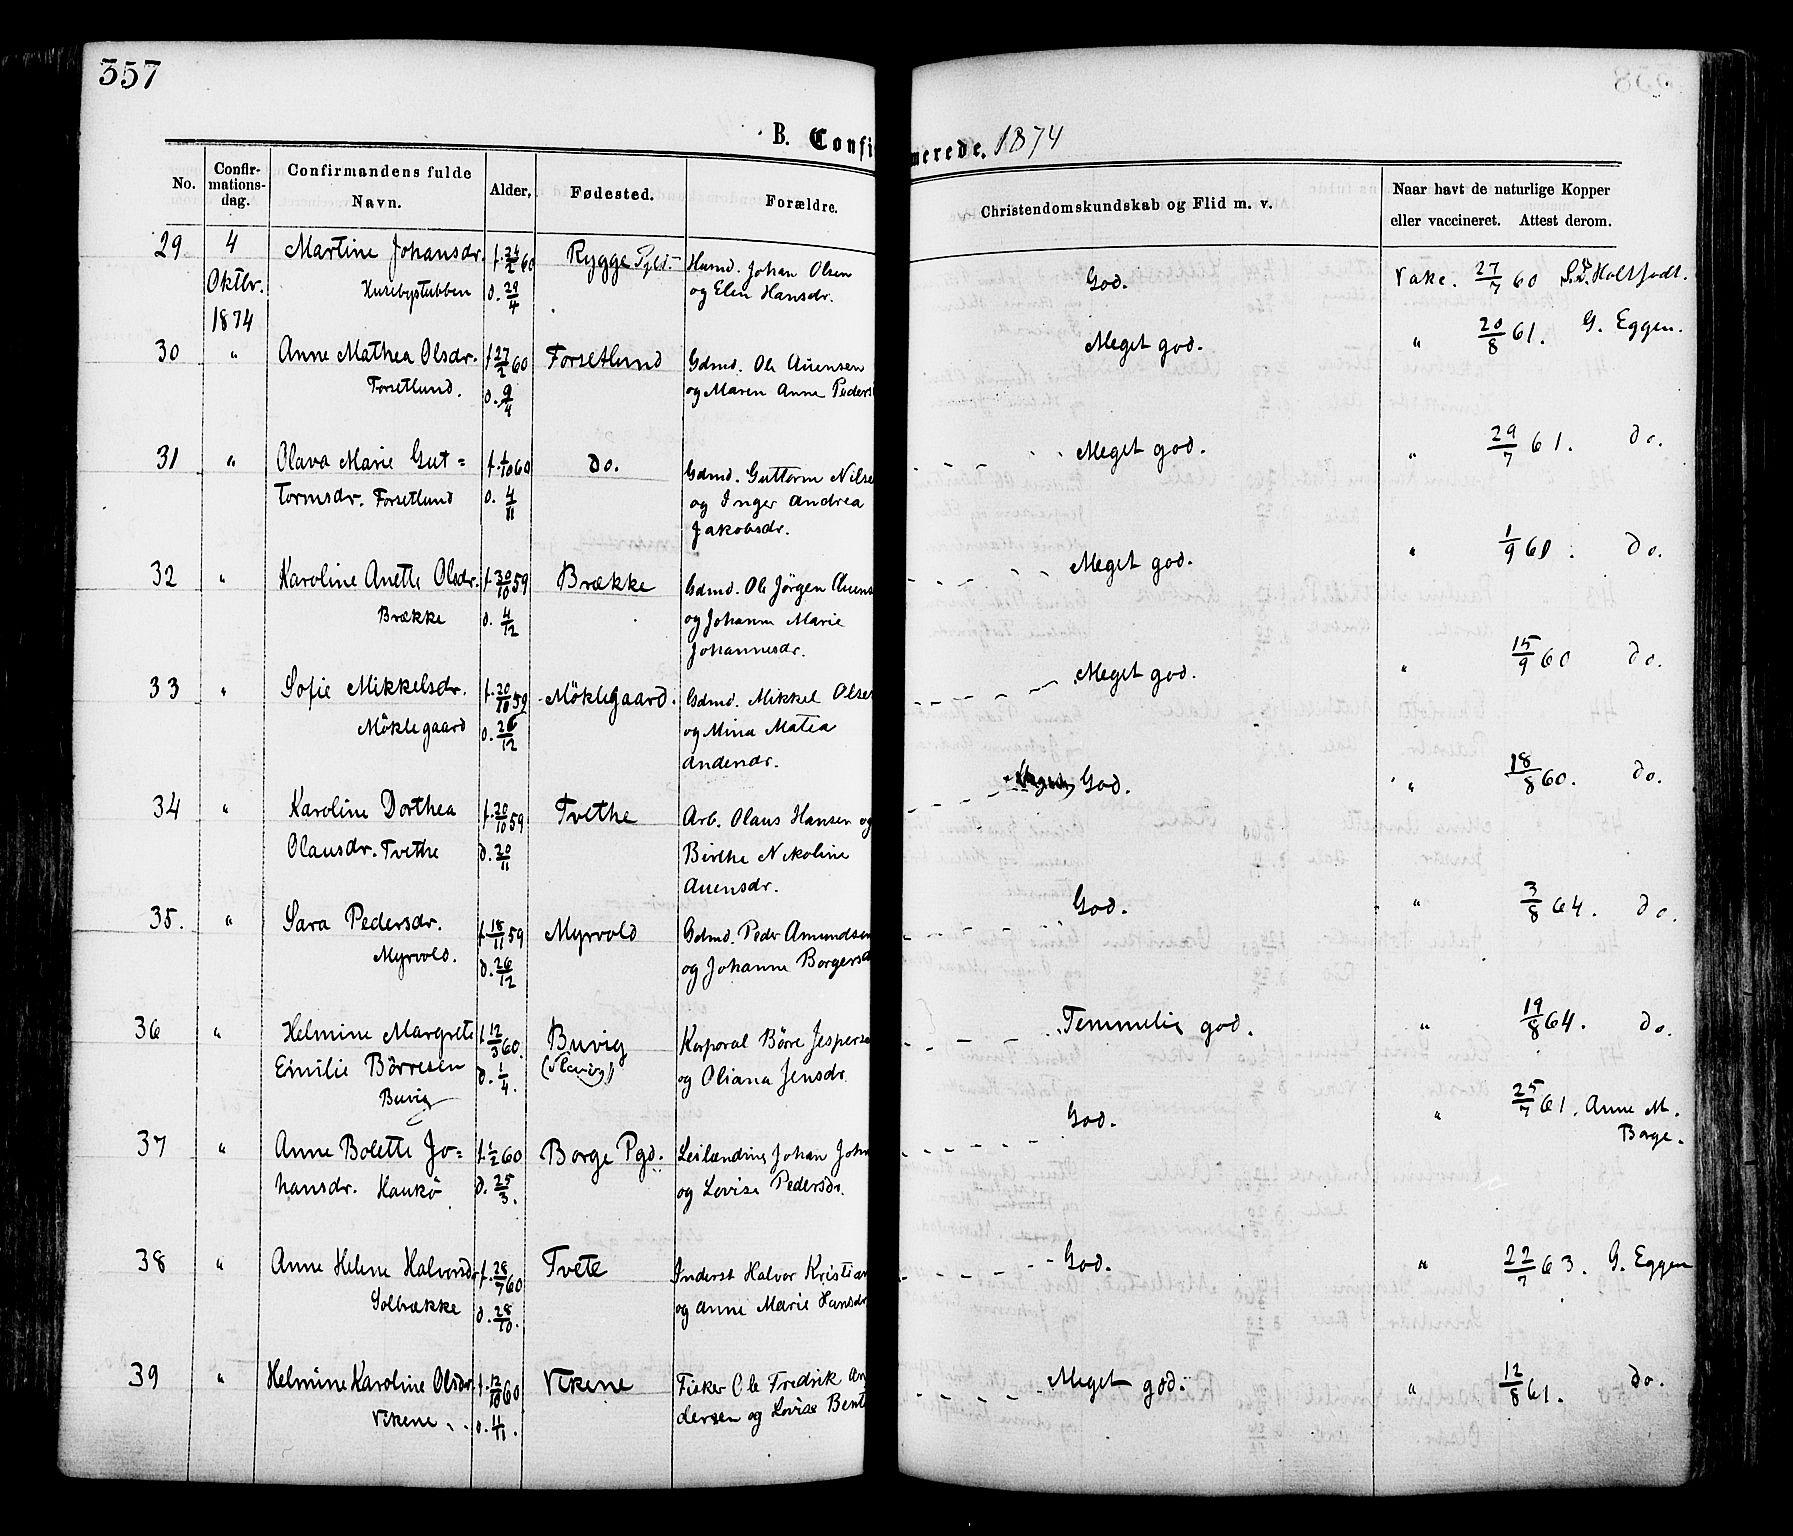 357
B. Confirmerede. 1874
No.
Confir-
mations-
dag.
Confirmandens fulde
Navn.
Alder.
Fødested.
Forældre.
Christendomskundskab og Flid m. v.
Naar havt de naturlige Kopper
eller vaccineret. Attest derom.
29 4 Martine Johansdr. f. 24/2 60 Rygge Husmd. Johan Olsen God. Vake. 27/7 60 Holtfodt.
Oktbr. Husebystubben d. 29/4 og Elin Hansdr.
1874
30 " Anne Mathea Olsdr. f. 27/2 60 Forsetlund Gdmd. Ole Auensen Meget god. " 20/8 61. G. Eggen.
Forsetlund. d. 9/4 og Maren Anne Peders
31 " Olava Marie Gut= f. 1/10 60 Do. Gdmd. Guttorm Nilse Meget god. " 29/7 61. Do.
tormsdr. Forsetlund d. 4/11 og Inger Andrea
Jakobsdr.
32 " Karoline Anette Olsdr. f. 30/10 59 Brække Gdmd. Ole Jörgen Auens Meget god. " 1/9 60. Do.
Brække d. 4/12 og Johanne Marie
Johannesdr.
33 " Sofie Mikkelsdr. f. 20/10 59 Möklegaard. Gdmd. Mikkel Olse Meget god. " 15/9 60 Do.
Möklegaard d. 26/12 og Mina Matea
Andersdr.
34 " Karoline Dorthea f. 20/10 59 Tvethe Arb. Olaus Hansen og God. " 18/8 60. Do.
Olausdr. Tvethe d. 20/11 Birthe Nikoline
Auensdr.
35. " Sara Pedersdr. f. 18/11 59 Myrvold Gdmd. Peder Amundsen God. " 3/8 64. Do.
Myrvold. d. 26/12 og Johanne Borgersd
36 " Helmine Margrete f. 12/3 60. Buvig Korporal Börre Jesperse Temmelig god. " 19/8 64. Do.
Emilie Börresen d. 1/4. og Oliana Jensdr.
Buvig
37 " Anne Bolette Jo= f. 1/2 60 Borge Pgd. Leilænding Johan Joh God. " 25/7 61. Anne M.
Borge.
hansdr. Haukö d. 25/3. og Lovise Pedersdr.
38 " Anne Helene Halvorsdr f. 28/7 60 Tvete Inderst Halvor Kristian God. " 22/7 63. G. Eggen
Solbrække d. 28/10. og Anne Marie Hansdr
39 " Helmine Karoline Olsdr. f. 12/10 60 Vikene Fisker Ole Fredrik An Meget god. " 12/8 61. Do.
Vikene. d. 4/11. dersen og Lovise Bent